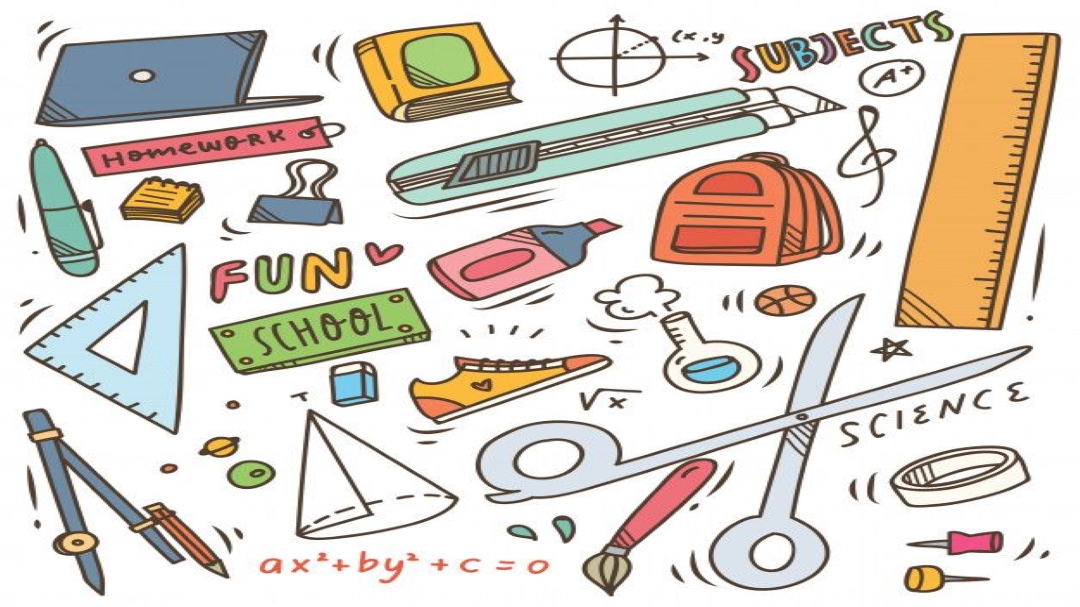 (x,y
SUBJECTS
A+
HOMEWORK
FUN
SCHOOL
√x
SCIENCE
ax²+by²+c=0